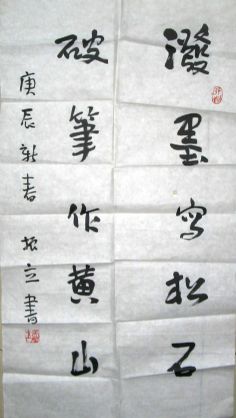 潑墨寫松石
破筆作黄山
庚辰新春 振立書